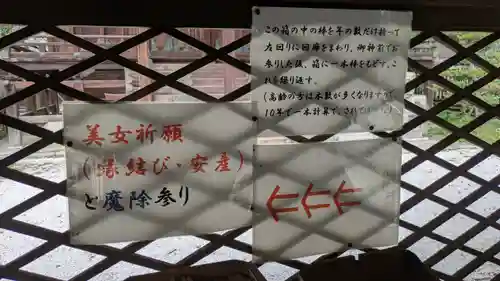 この箱の中の棒を年の数だけ持って
左回りに回廊をまわり、御神前でお
参りした後、箱に一本棒をもどす。こ
れを繰り返す。
(高齢の方は本数が多くなりますので
10年で一本計算で、されても
美女祈願
(縁結び・安産)
と魔除参り